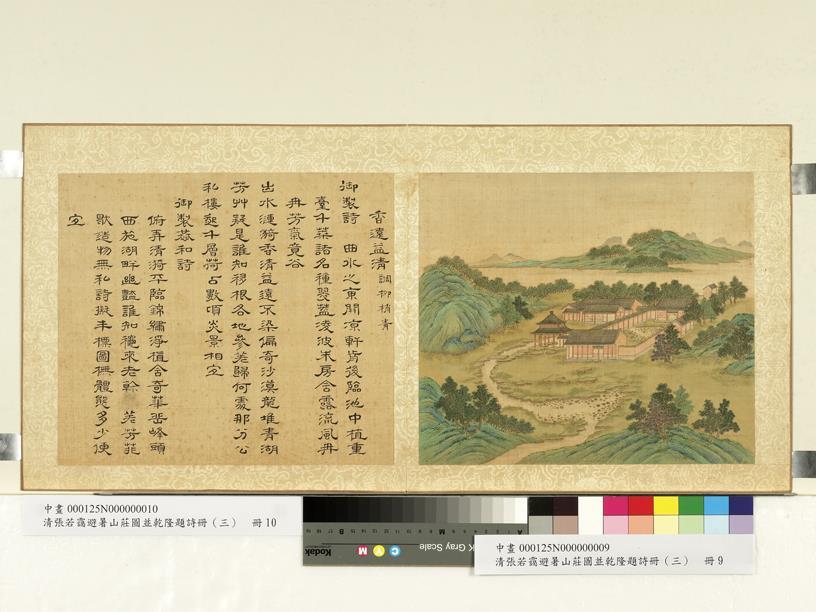 香遠益清 調柳梢青
御製詩 曲水之東開凉軒背後臨池中植重
臺千葉諸名種翠蓋凌波朱房含露流風冉
冉芳氣竟谷
出水漣漪香清益遠不染偏奇沙漠龍堆青湖
芳艸疑是誰知移根各地參差歸何處那分公
私樓起千層荷占數頃炎景相宜
御製恭和詩
俯弄清漪平臨錦繡淨植含奇華峰頭
西施湖畔幽豔誰知來老幹芳菲
歎造物無私詩擬丰標圖橅體態多少便
宜
中畫 000125N000000010
清張若靄避暑山莊圖並乾隆題詩冊（三） 冊 10
Kodak
C Y M
K Gray Scale
A M B
中畫 000125N000000009
清張若靄避暑山莊圖並乾隆題詩冊（三） 冊 9